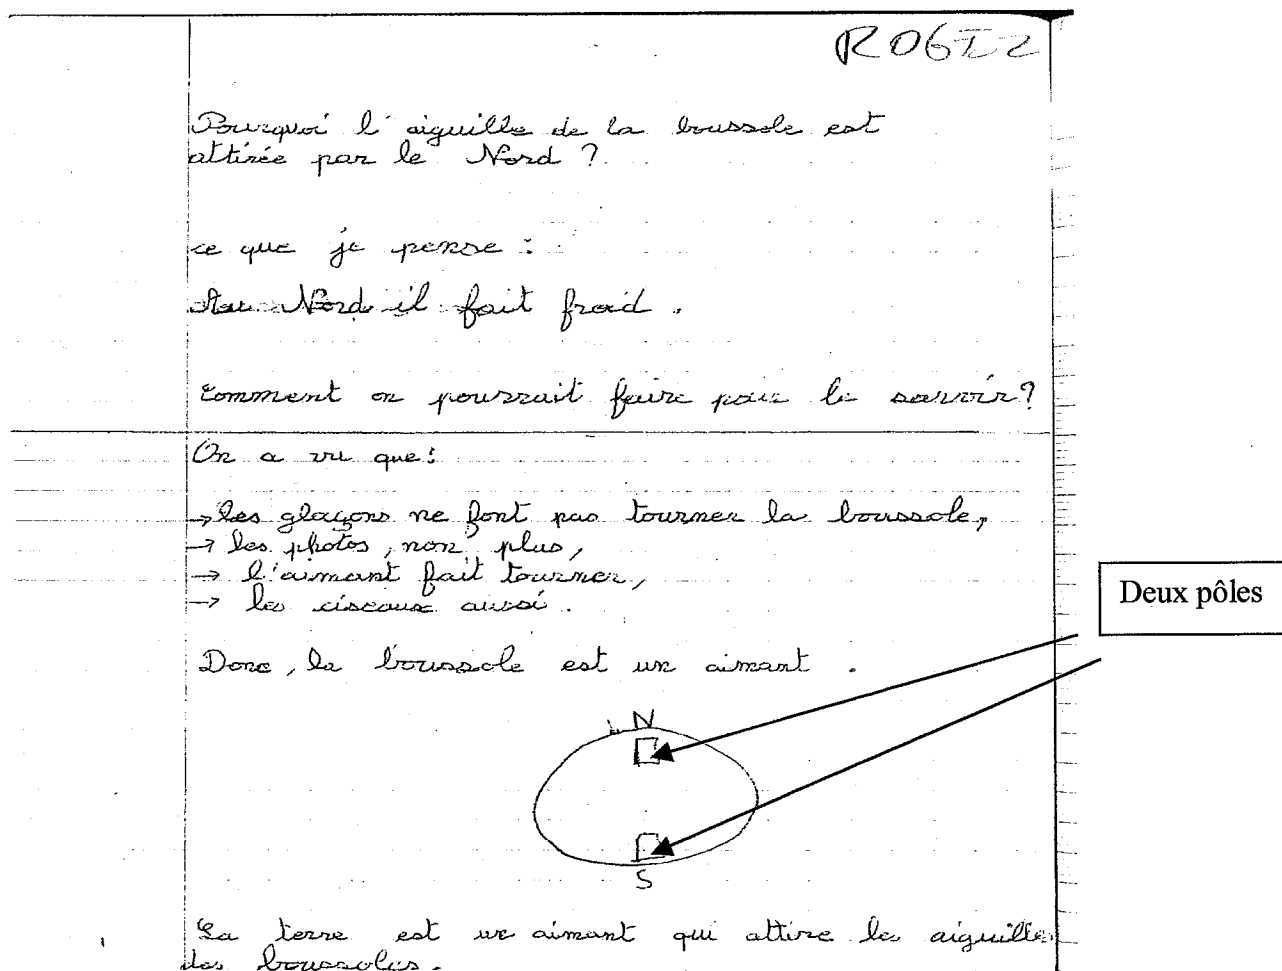 R06I2
Pourquoi l'aiguille de la boussole est
attirée par le Nord ?
ce que je pense :
Au Nord il fait froid .
Comment on pourrait faire pour le savoir ?
On a vu que :
→ les glaçons ne font pas tourner la boussole,
→ les photos, non plus,
→ l'aimant fait tourner,
→ les ciseaux aussi .
Deux pôles
Donc, la boussole est un aimant .
N
S
La terre est un aimant qui attire les aiguilles
des boussoles .